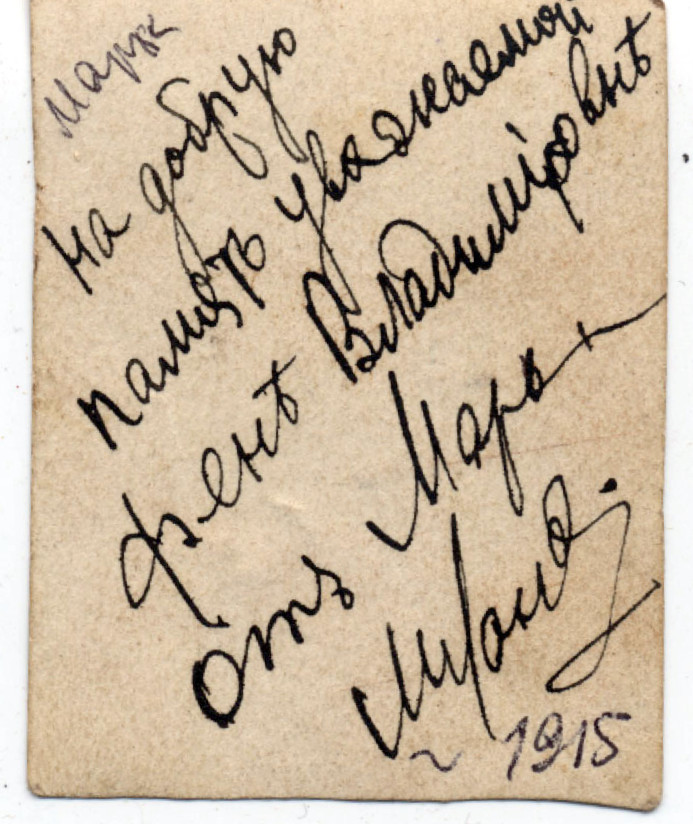 Марк
На добрую
память уважаемой
Фенѣ Владимировнѣ
отъ Марк
~ 1915